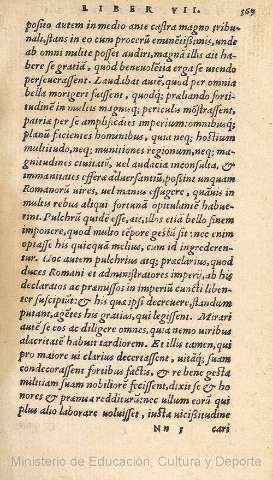 LIBER VII. 569
posito autem in medio ante castra magno tribu-
nali, stans in eo cum procerū eminētissimis, unde
ab omni multite posset audiri, magnā illis ait ha-
bere se gratiā, quod beneuolētia erga se utendo
perseuerassent. Laudabat autē, quod per omnia
bella morigeri fuissent, quodq; præliando forti-
tudinē in multis magnisq; periculis mōstrassent,
patria per se amplificātes imperium: omnibusq;
planū facientes hominibus, quia neq; hostium
multitudo, neq; munitiones regionum, neq; ma-
gnitudines ciuitatū, uel audacia inconsulta, &
immanitates efferæ aduersantiū, possint unquam
Romanorū uires, uel manus effugere, quāuis in
multis rebus aliqui fortunā opitulantē habue-
rint. Pulchrū quidē esse, ait, illos etiā bello finem
imponere, quod multo tēpore gestū sit: nec enim
optasse his quicquā melius, cum id ingrederen-
tur. Hoc autem pulchrius atq; præclarius, quod
duces Romani et administratores imperij, ab his
declaratos ac præmissos in imperiū cuncti liben-
ter suscipiūt: & his quæ ipsi decreuere, standum
putant, agētes his gratias, qui legissent. Mirari
autē se eos ac diligere omnes, quia nemo uiribus
alacritatē habuit tardiorem. Et illis tamen, qui
pro maiore ui clarius decertassent, uitāq; suam
condecorassent fortibus factis, & re bene gesta
militiam suam nobiliorē fecissent, dixit se & ho
nores & præmia redditurū: nec ullum eorū qui
plus alio laborare uoluisset, iusta uicissitudine
NN 5 cari
Ministerio de Educación, Cultura y Deporte